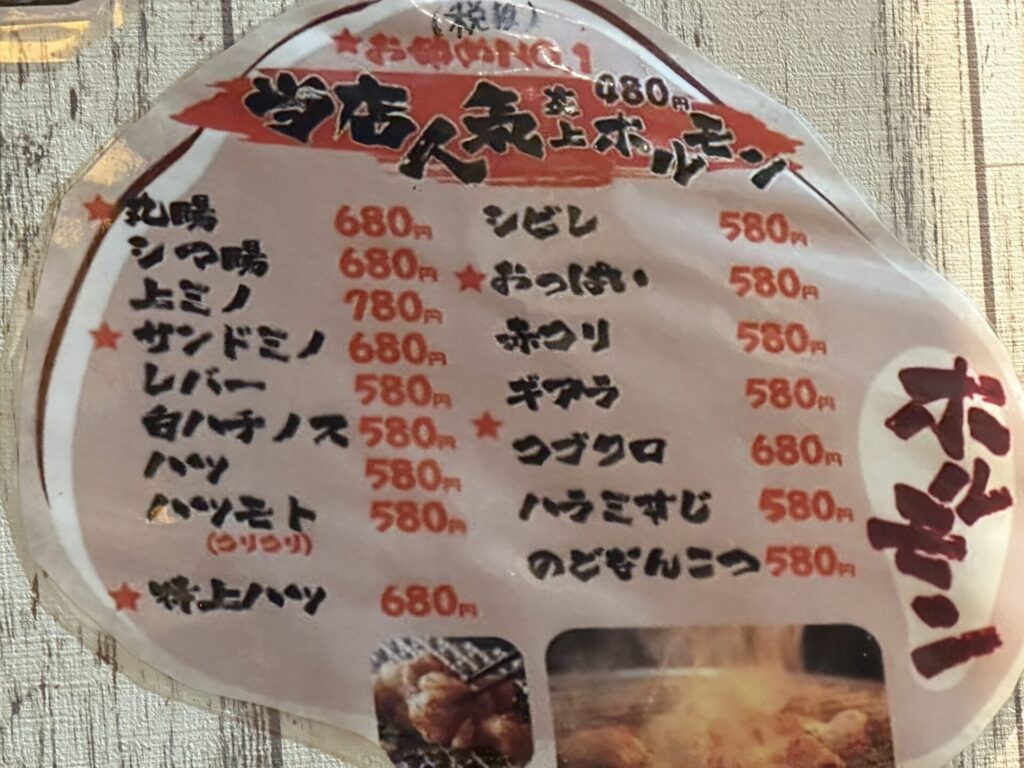 (税別)
★お勧めNO.1
当店人気 上ホルモン 480円
★丸腸 680円
シマ腸 680円
上ミノ 780円
★サンドミノ 680円
レバー 580円
白ハチノス 580円
ハツ 580円
ハツモト 580円
(コリコリ)
★特上ハツ 680円
シビレ 580円
★おっぱい 580円
赤コリ 580円
ギアラ 580円
★コブクロ 680円
ハラミすじ 580円
のどなんこつ 580円
ホルモン